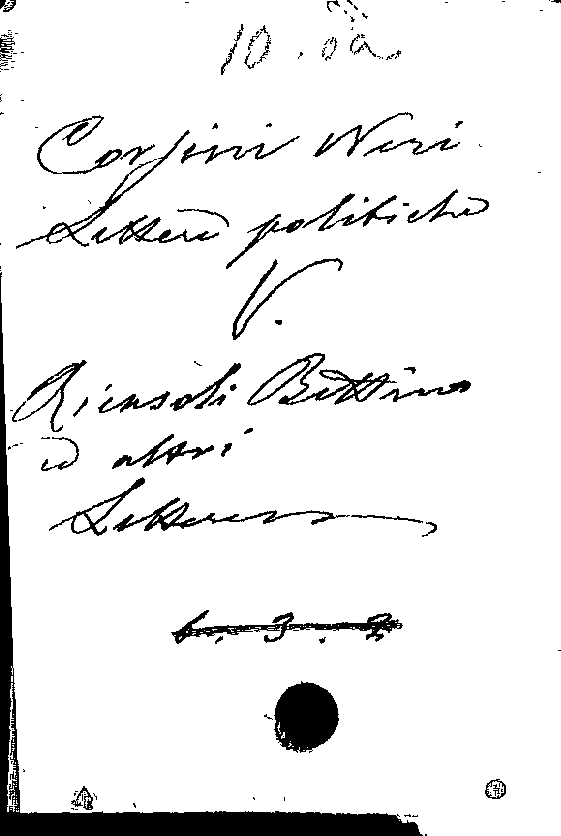 Corsini Neri
Lettere politiche
V.
Ricasoli Bettino
ed altri
Lettere
6. 3. 2